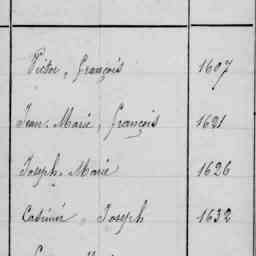 Victor, François 1607
Jean-Marie, François 1621
Joseph-Marie 1626
Casimir, Joseph 1632